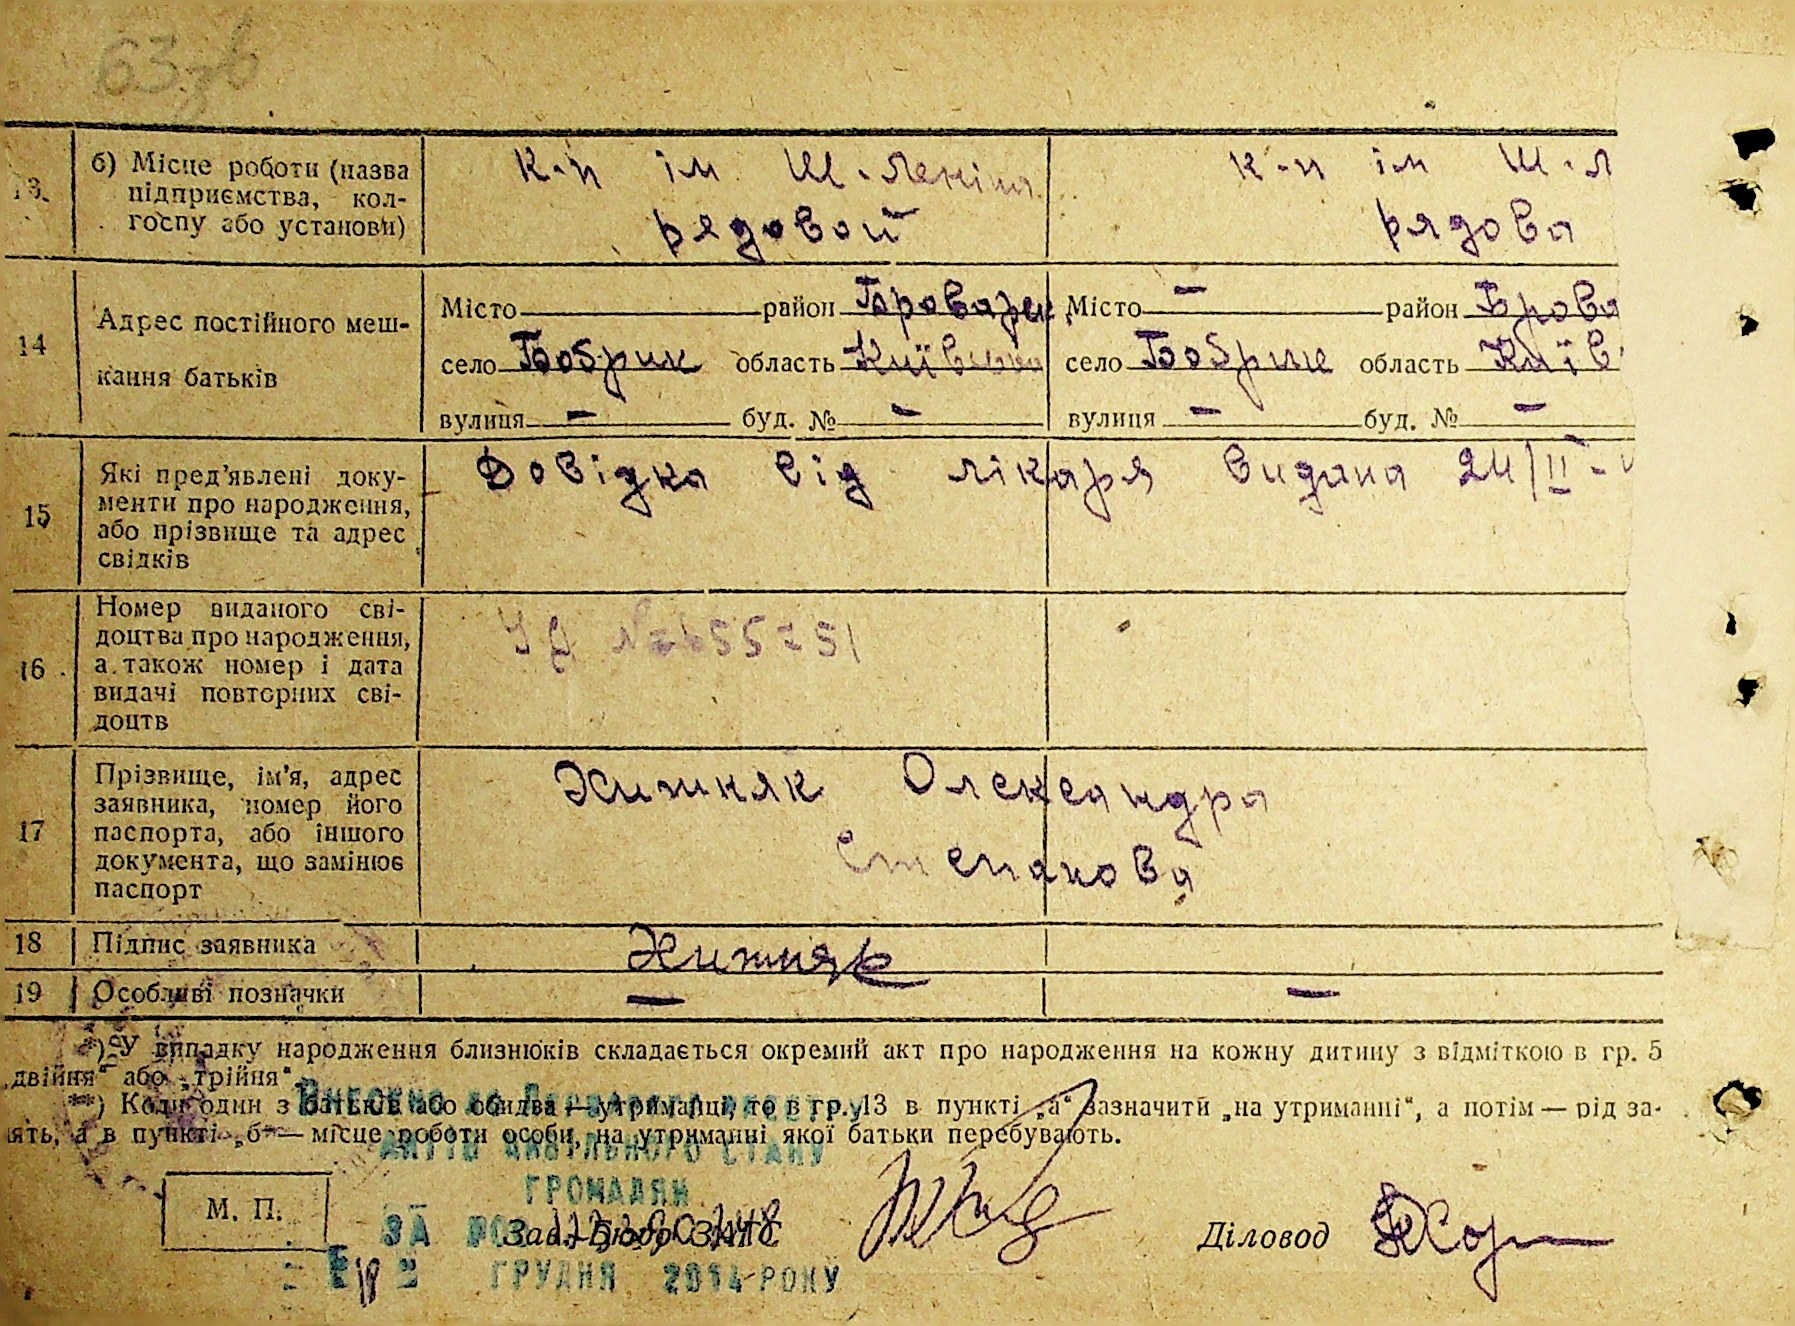 13. б) Місце роботи (назва
підприємства, кол-
госпу або установи)
к-п ім Ш-Леніна
рядовой
к-п ім Ш-Л
рядова
14 Адрес постійного меш-
кання батьків
Місто район Броварск. Місто — район Брова
село Бобрик область Київська село Бобрик область Київ
вулиця — буд. № — вулиця — буд. № —
15 Які пред'явлені доку-
менти про народження,
або прізвище та адрес
свідків
Довідка від лікаря видана 24/II-
16 Номер виданого сві-
доцтва про народження,
а також номер і дата
видачі повторних сві-
доцтв
17 Прізвище, ім'я, адрес
заявника, номер його
паспорта, або іншого
документа, що замінює
паспорт
Хижняк Олександра
Степанова
18 Підпис заявника Хижняк
19 Особливі позначки — —
*) У випадку народження близнюків складається окремий акт про народження на кожну дитину з відміткою в гр. 5
„двійня“ або „трійня“.
**) Коли один з батьків або обидва — утриманці, то в гр. 13 в пункті „а“ зазначити „на утриманні“, а потім — рід за-
нять, а в пункті „б“ — місце роботи особи, на утриманні якої батьки перебувають.
Внесено до Державного реєстру
актів цивільного стану
громадян
М. П. за Зав. Бюро ЗАГС Діловод
грудня 2014 року